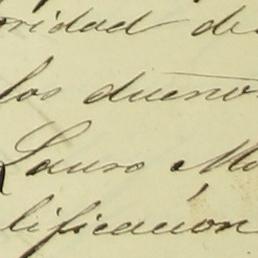 oridad de
los dueños
Lauro Mo
lificación